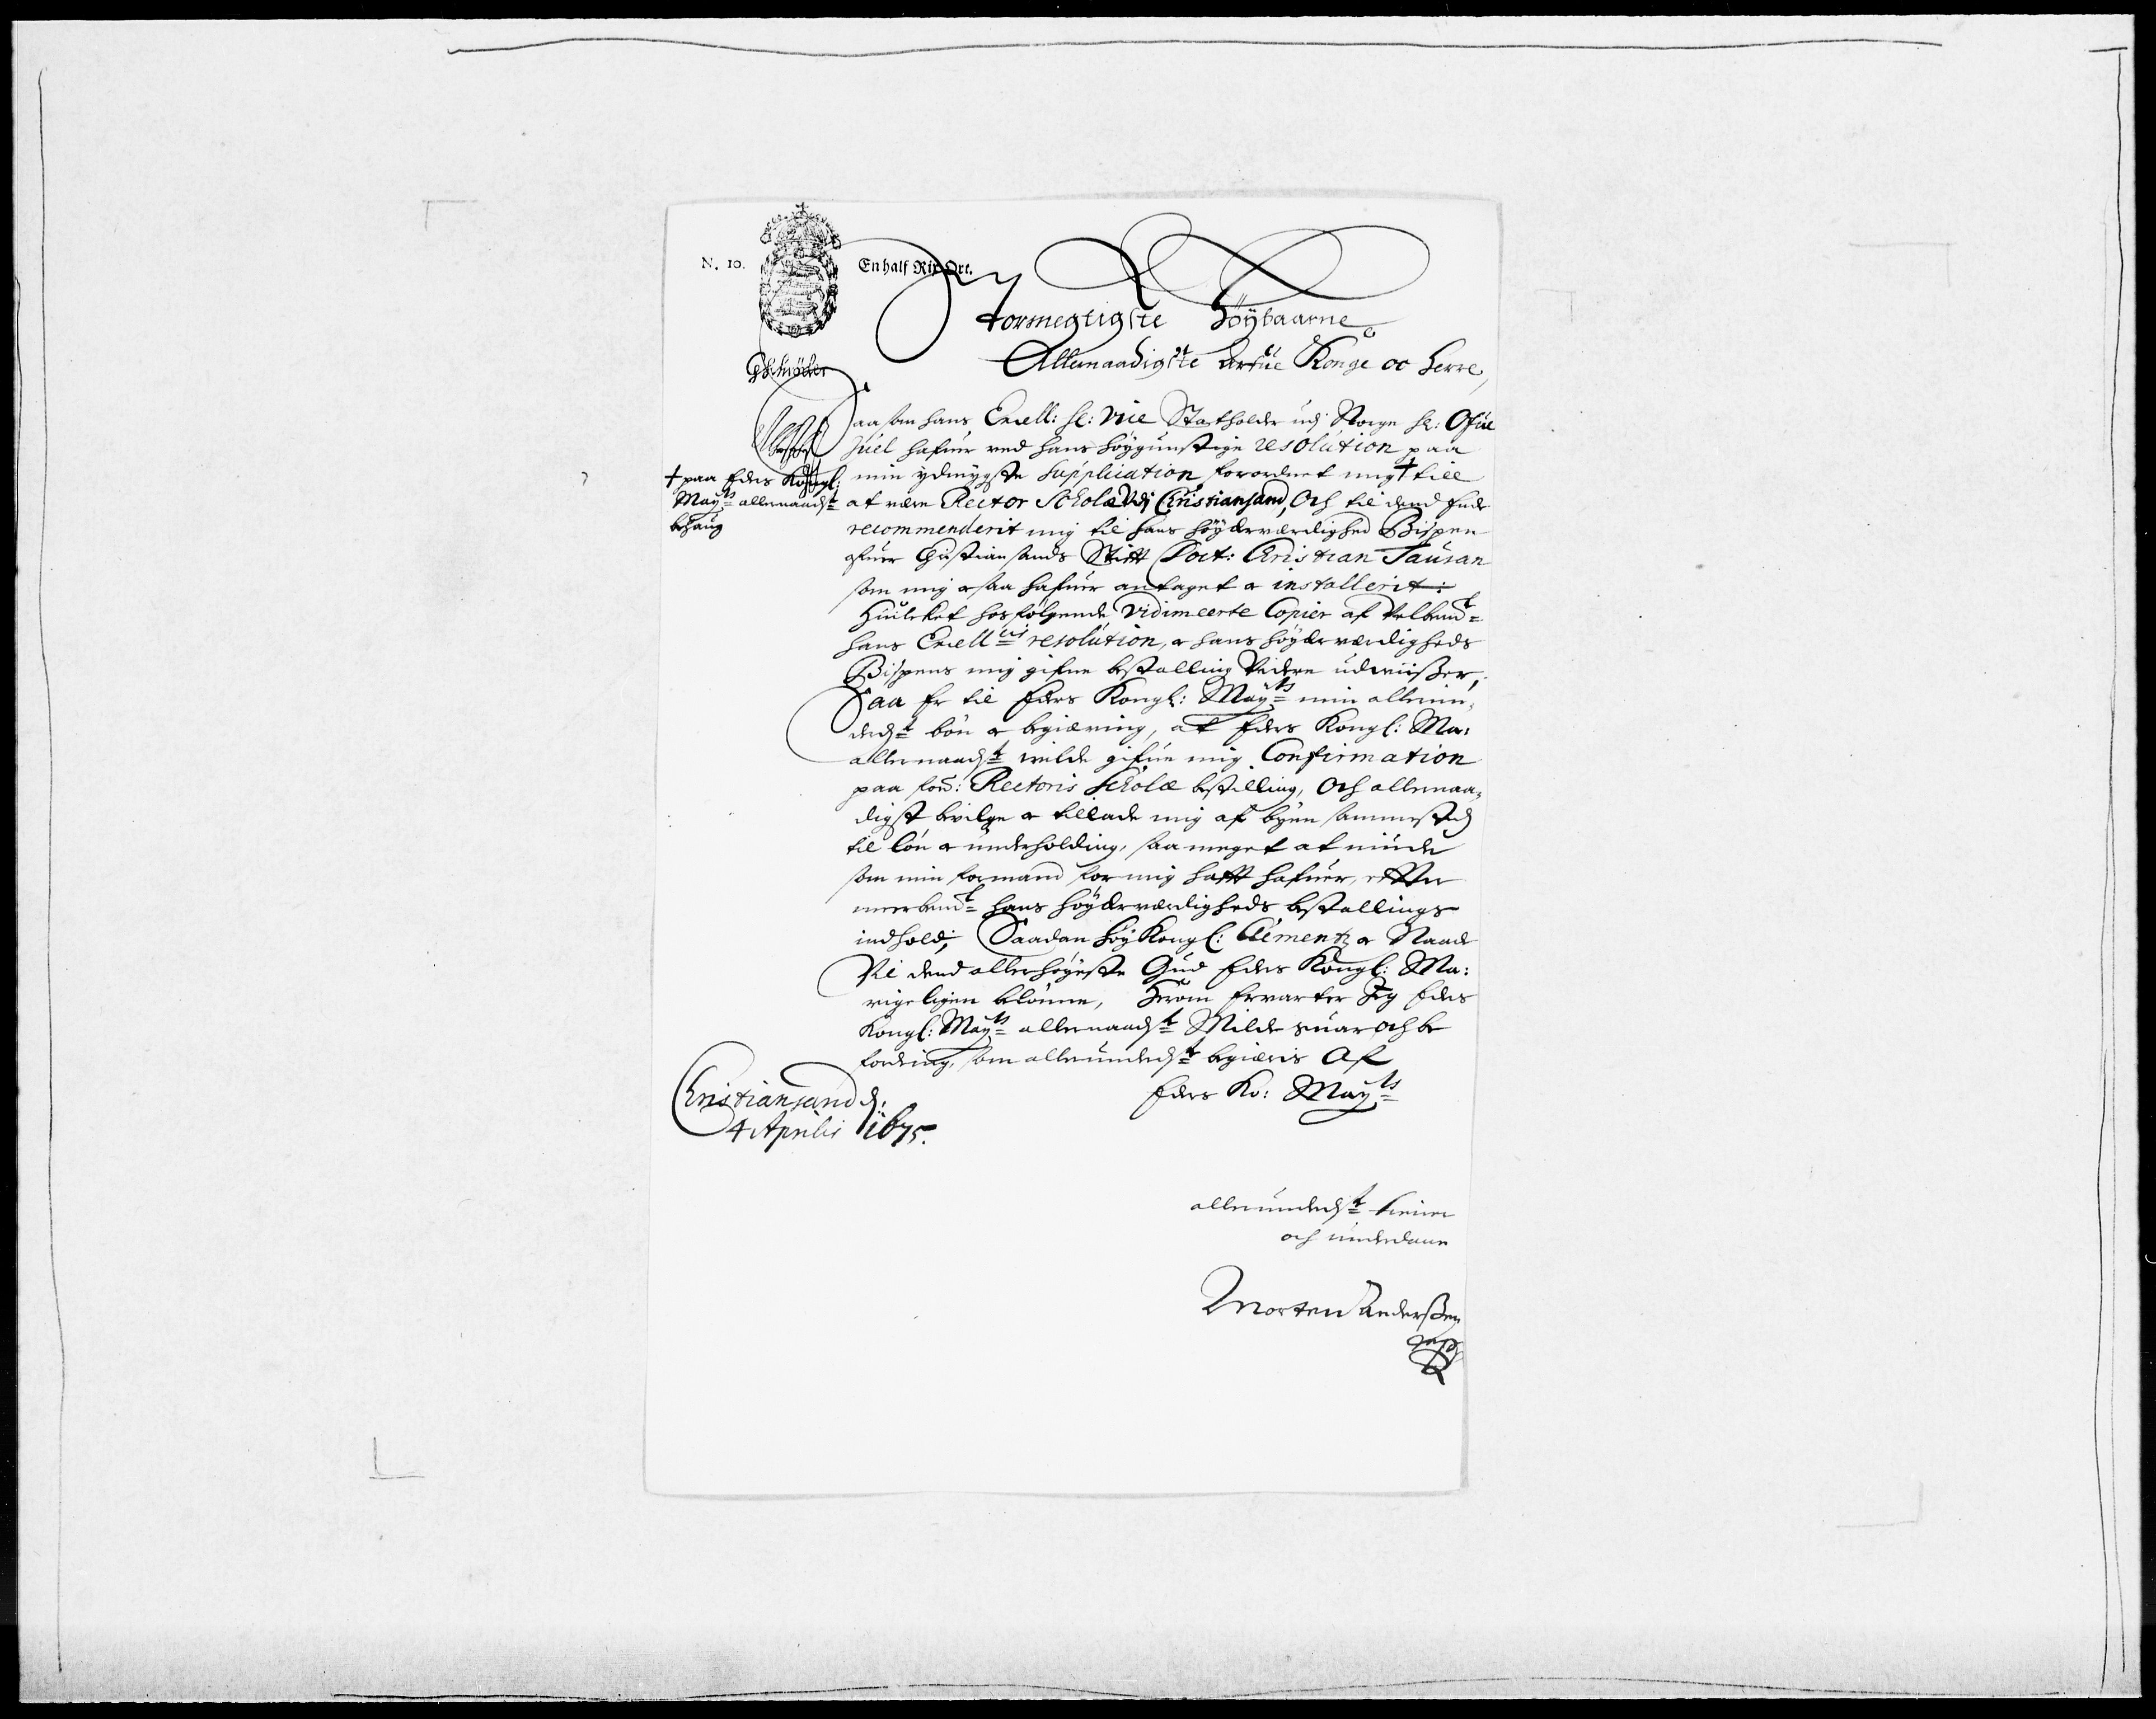 N. 10.
En half Rix Ort.
Stormegtigste Höÿbaarne
Allernaadigste Arfue Konge oc Herre,
Saasom hans Excell: Hr: Vice Statholder udj Norge Hr: Ofue
Juel hafuer ved hans höÿgunstige resolution paa
min ydmygste Supplication forordnet mig † till
† paa Eders Kongl:
Mayts allernaadst
behaug
at være Rector Scholæ Udj Christiansand, Och til dend Ende
recommenderit mig til hans höÿærværdighed Bispen
ofuer Christiansands Stifft Doct: Christian Tausan
som mig ocsaa hafuer antaget oc installerit:
Huilcket hosfølgende Vidimeerte Copier af Velbemt
hans Excellcis resolution, oc hans höÿærværdigheds
Bispens mig gifne bestalling Videre udviißer,
Saa Er til Eders Kongl: Mayts min allerun-
derdst bön oc begiæring, at Eders Kongl: Ma:
allernaadst wilde gifue mig Confirmation
paa ford: Rectoris Scholæ bestilling, Och allernaa-
digst bevilge oc tillade mig af byen sammested
til lön oc underholding, saa meget at niude
som min formand for mig hafft hafuer, effter
meerbemt hans höÿærværdigheds bestallings
indhold; Saadan höÿ Kongl: Clementz oc Naade
Vil dend allerhöÿeste Gud Eders Kongl: Ma:
rigeligen belönne, Herom Ervarter Jeg Eders
Kongl: Mayts allernaadst Milde suar och be
fordring, som allerunderdst begiæris Af
Eders Ko: Mayts
Christiansand d:
4 Aprilis 1675.
allerunderdst tiener
och underdane
Morten Anderßen